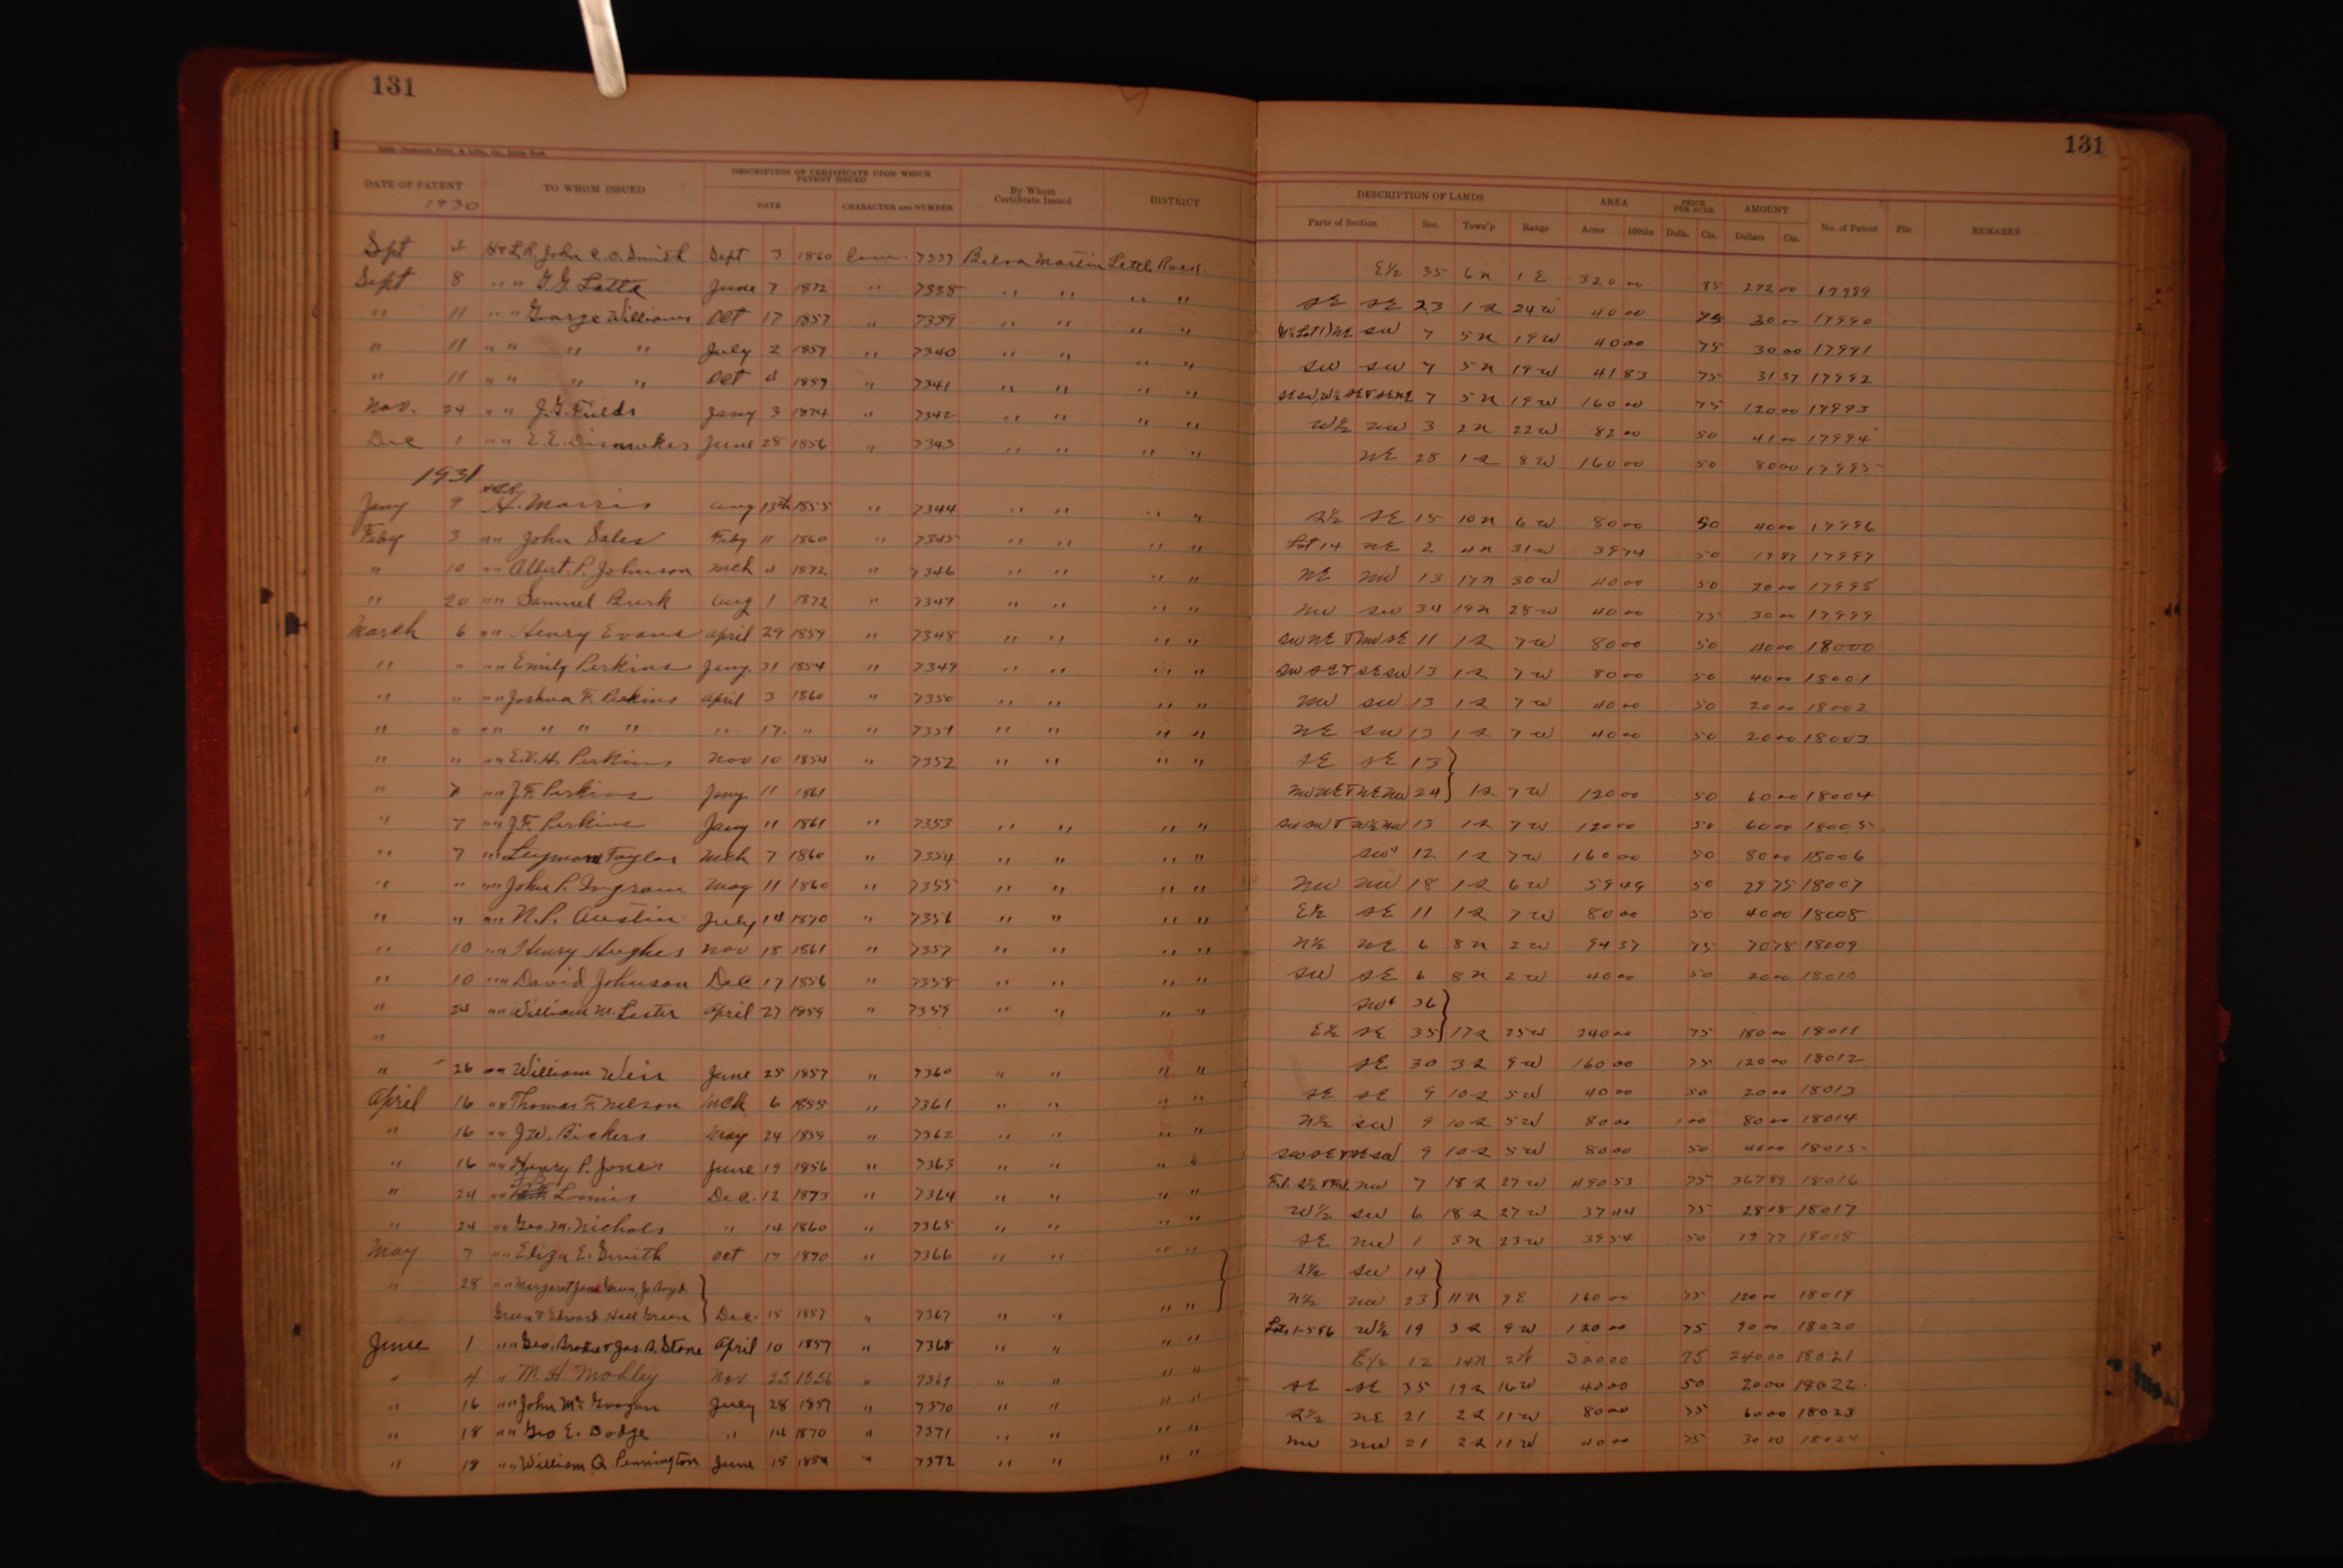 131
DATE OF PATENT TO WHOM ISSUED DESCRIPTION OF CERTIFICATE UPON WHICH PATENT ISSUED By Whom Certificate Issued DISTRICT
1930 DATE CHARACTER AND NUMBER
Sept 4 John C. O. Smith Sept 3 1860 Com. 7337 Belva Martin Little Rock.
Sept 8 " " " G. G. Latta June 7 1872 " 7338 " " " "
" 11 " " George Williams Oct 17 1857 " 7339 " " " "
" 11 " " " " July 2 1859 " 7340 " " " "
" 11 " " " " Oct 4 1859 " 7341 " " " "
Nov. 24 " " J. G. Fields Jany 3 1874 " 7342 " " " "
Dec 1 " " E. E. Dismukes June 28 1856 " 7343 " " " "
1931
Jany 9 H. Morris Aug 13th 1855 " 7344 " " " "
Feby 3 " " John Sales Feby 11 1860 " 7345 " " " "
" 10 " " Albert P. Johnson Mch 4 1872 " 7346 " " " "
" 20 " " Samuel Burk Aug 1 1872 " 7347 " " " "
March 6 " " Henry Evans April 29 1859 " 7348 " " " "
" " " " Emily Perkins Jany. 31 1854 " 7349 " " " "
" " " " Joshua F. Perkins April 3 1860 " 7350 " " " "
" " " " " " " " 17. " " 7351 " " " "
" " " " E. V. H. Perkins Nov 10 1854 " 7352 " " " "
" 7 " " J. F. Perkins Jany 11 1861
" 7 " " J. F. Perkins Jany 11 1861 " 7353 " " " "
" 7 " " Taylor Mch 7 1860 " 7354 " " " "
" " " " John P. Ingram May 11 1860 " 7355 " " " "
" " " " N. P. Austin July 14 1870 " 7356 " " " "
" 10 " " Henry Hughes Nov 18 1861 " 7357 " " " "
" 10 " " David Johnson Dec 17 1856 " 7358 " " " "
" 24 " " William M. Lester April 27 1859 " 7359 " " " "
"
" 26 " " William Weir June 25 1857 " 7360 " " " "
April 16 " " Thomas F. Nelson Mch 6 1855 " 7361 " " " "
" 16 " " J. W. Bickers May 24 1859 " 7362 " " " "
" 16 " " Henry P. Jones June 19 1856 " 7363 " " " "
" 24 " " Loomis Dec. 12 1873 " 7364 " " " "
" 24 " " Geo. M. Nichols " 14 1860 " 7365 " " " "
May 7 " " Eliza E. Smith Oct 17 1870 " 7366 " " " "
" 28 " " Margaret Jane Green, Jo Boyd
Green & Edward Hall Green Dec. 15 1857 " 7367 " " " "
June 1 " " Geo. Brodie & Jas. A. Stone April 10 1857 " 7368 " " " "
" 4 " M. H. Mobley Nov. 25 1856 " 7369 " " " "
" 16 " " John Mc Googan July 28 1857 " 7370 " " " "
" 18 " " Geo E. Dodge " 14 1870 " 7371 " " " "
" 18 " " William Q. Pennington June 15 1854 " 7372 " " " "
131
DESCRIPTION OF LANDS AREA PRICE PER ACRE AMOUNT No. of Patent File REMARKS
Parts of Section Sec. Town'p Range Acres 100ths Dolls. Cts. Dollars Cts.
E½ 35 6 N 1 E 320 00 85 272 00 17989
SE SE 23 1 S 24 W 40 00 75 30 00 17990
SW 7 5 N 19 W 40 00 75 30 00 17991
SW SW 7 5 N 19 W 41 83 75 31 37 17992
SE SW, W½ SE & SE NE 7 5 N 19 W 160 00 75 120 00 17993
W½ NW 3 2 N 22 W 82 00 50 41 00 17994
NE 28 1 S 8 W 160 00 50 80 00 17995
S½ SE 15 10 N 6 W 80 00 50 40 00 17996
Lot 14 NE 2 4 N 31 W 39 74 50 19 87 17997
NE NW 13 17 N 30 W 40 00 50 20 00 17998
NW SW 34 19 N 28 W 40 00 75 30 00 17999
SW NE & NW SE 11 1 S 7 W 80 00 50 40 00 18000
SW SE & SE SW 13 1 S 7 W 80 00 50 40 00 18001
NW SW 13 1 S 7 W 40 00 50 20 00 18002
NE SW 13 1 S 7 W 40 00 50 20 00 18003
SE SE 13
NW NE & NE NW 24 1 S 7 W 120 00 50 60 00 18004
SW SW & W½ NW 13 1 S 7 W 120 00 50 60 00 18005
SW" 12 1 S 7 W 160 00 50 80 00 18006
NW NW 18 1 S 6 W 59 49 50 29 75 18007
E½ SE 11 1 S 7 W 80 00 50 40 00 18008
N½ NE 6 8 N 2 W 94 37 75 70 78 18009
SW SE 6 8 N 2 W 40 00 50 20 00 18010
SW 36
E½ SE 35 17 S 25 W 240 00 75 180 00 18011
SE 30 3 S 9 W 160 00 75 120 00 18012
SE SE 9 10 S 5 W 40 00 50 20 00 18013
N½ SW 9 10 S 5 W 80 00 1 00 80 00 18014
SW SE & SE SW 9 10 S 5 W 80 00 50 40 00 18015
NW 7 18 S 27 W 490 53 75 367 89 18016
W½ SW 6 18 S 27 W 37 44 75 28 08 18017
SE NW 1 3 N 23 W 39 54 50 19 77 18018
S½ SW 14
N½ NW 23 11 N 9 E 160 00 75 120 00 18019
Lots 1-5&6 W½ 19 3 S 9 W 120 00 75 90 00 18020
E½ 12 14 N 2 W 320 00 75 240 00 18021
SE SE 35 19 S 16 W 40 00 50 20 00 18022
S½ NE 21 2 S 11 W 80 00 75 60 00 18023
NW NW 21 2 S 11 W 40 00 75 30 00 18024